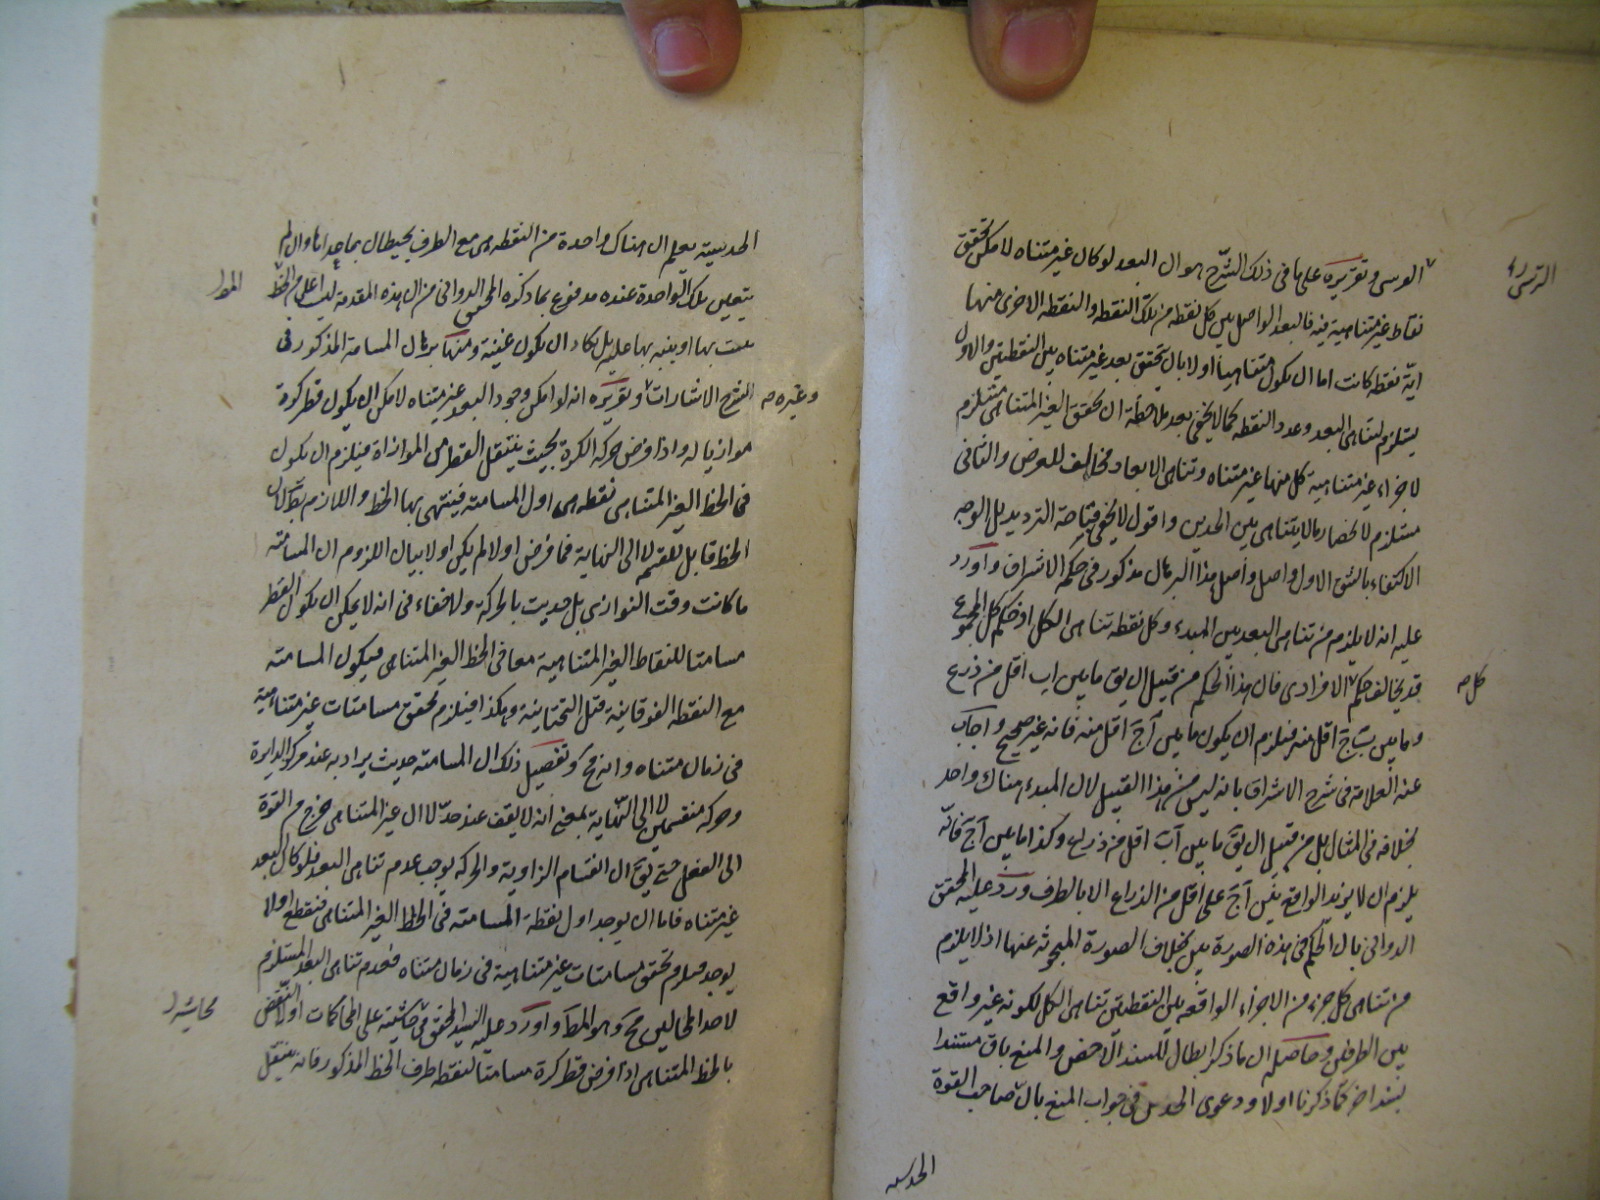 الترسى
القوسى وتقريره على ما فى ذلك الشرح هو ان البعد لو كان غير متناه لامكن تحقق
نقاط غير متناهية فيه فالبعد الواصل بين كل نقطه من تلك النقطه والنقطه الاخرى منها
اية نقطه كانت اما ان يكون متناهيا او لا بان تحقق بعد غير متناه بين النقطتين والاول
يستلزم لتناهى البعد وعدد النقطه كما لا يخفى بعد ملاحظة ان تحقق الغير المتناهى مستلزم
لاجزاء غير متناهية كل منها غير متناه وتناهى الابعاد مخالف للفرض والثانى
مستلزم لانحصار ما لا يتناهى بين الحدين واقول لا يخفى قباحة الترديد بل الوجه
الاكتفاء بالشق الاول واصل واصل هذا البرهان مذكور فى حكمة الاشراق واورد
عليه انه لا يلزم من تناهى البعد بين المبدء وكل نقطه تناهى الكل اذ حكم كل المجموع
قد يخالف حكم الافرادى فان هذا الحكم من قبيل ان يق ما بين اب اقل من ذرع
كل صح
وما بين ب ج اقل منه فيلزم ان يكون ما بين آج اقل منه فانه غير صحيح واجاب
عنه العلامة فى شرح الاشراق بانه ليس من هذا القبيل لان المبدء هناك واحد
بخلافه فى المثال بل من قبيل ان يق ما بين آب اقل من ذرع وكذا ما بين آج فانه
يلزم ان لا يزيد الواقع بين آج على اقل من الذراع الا بالطرف ورد عليه المحقق
الدوانى بان الحكم فى هذه الصورة بين بخلاف الصورة المبحوثه عنها اذ لا يلزم
من تناهى كل جزء من الاجزاء الواقعه بين النقطتين تناهى الكل لكونه غير واقع
بين الطرفين وحاصله ان ما ذكر ابطال للسند الاخص والمنع باق مستندا
بسند اخر كما ذكرنا اولا ودعوى الحدس فى جواب المنع بان صاحب القوة
الحدسيه
الحدسية يعلم ان هناك واحدة من النقطه هى مع الطرف يحيطان بما عداها وان لم
يتعين تلك الواحدة عنده مدفوع بما ذكره المحقق الدوانى من ان هذه المقدمة ليست اعلى من الخط
المط
يثبت بها او ينبه بها عليه بل يكاد ان يكون عينية ومنها برهان المسامتة المذكور فى
الشرح الاشارات وتقريره انه لو امكن وجود البعد غير متناه لامكن ان يكون قطر كرة
وغيره صح
موازيا له واذا فرض حركة الكرة بحيث ينتقل القطر من الموازاة فيلزم ان يكون
فى الخط الغير المتناهى نقطه هى اول المسامته فينتهى بها الخط واللازم بط لان
الخط قابل للقسمة لا الى النهاية فما فرض اولا لم يكن اولا بيان اللزوم ان المسامته
ما كانت وقت التوازى بل حدثت بالحركة ولا خفاء فى انه لا يمكن ان يكون القطر
مسامتا للنقاط الغير المتناهية معا فى الخط الغير المتناهى فيكون المسامته
مع النقطه الفوقانية قبل التحتانية وهكذا فيلزم تحقق مسامتات غير متناهية
فى زمان متناه وانه مح وتفصيل ذلك ان المسامته حديث يراد به عند مركز الدايرة
وحركه منقسمين لا الى النهاية بمعنى انه لا يقف عند حد لا ان غير المتناهى خرج من القوة
الى الفعل حتى يق ان انقسام الزاوية والحركه يوجب عدم تناهى البعد فلو كان البعد
غير متناه فاما ان يوجد اول نقطة المسامته فى الخط الغير المتناهى فينقطع او لا
يوجد فيلزم تحقق مسامتات غير متناهية فى زمان متناه فعدم تناهى البعد المستلزم
لاحد المحالين مح وهو المط واورد عليه السيد المحقق فى حاشيته على المحاكمات اولا النقض
بالخط المتناهى اذا فرض قطر كرة مسامتا لنقطه طرف الخط المذكور فانه ينتقل